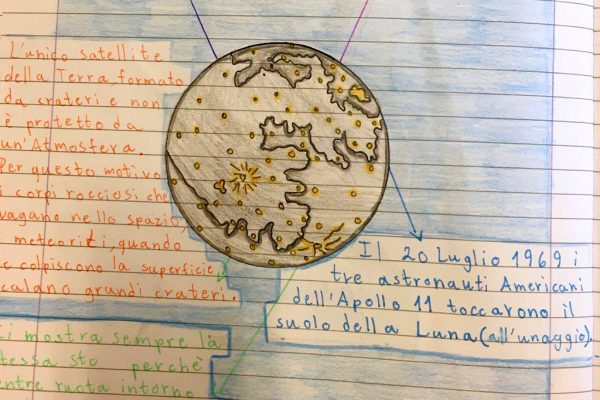 L'unico satellite
della Terra formato
da crateri e non
è protetto da
un'Atmosfera.
Per questo motivo
i corpi rocciosi che
vagano nello spazio,
meteoriti, quando
colpiscono la superficie
calano grandi crateri.
Il 20 Luglio 1969 i
tre astronauti Americani
dell'Apollo 11 toccarono il
suolo della Luna (all'unaggio).
ci mostra sempre la
stessa sto perchè
mentre ruota intorno